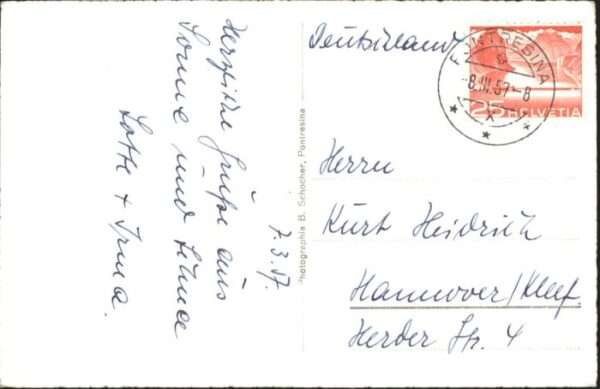 Herzliche Grüße aus
Sonne und Schnee
Lotte + Irma.
7.3.57.
Photographie B. Schocher, Pontresina
Deutschland
PONTRESINA
-8.III.57-8
25 HELVETIA
Herrn
Kurt Heidrich
Hannover/Kleef.
Herder Str. 4